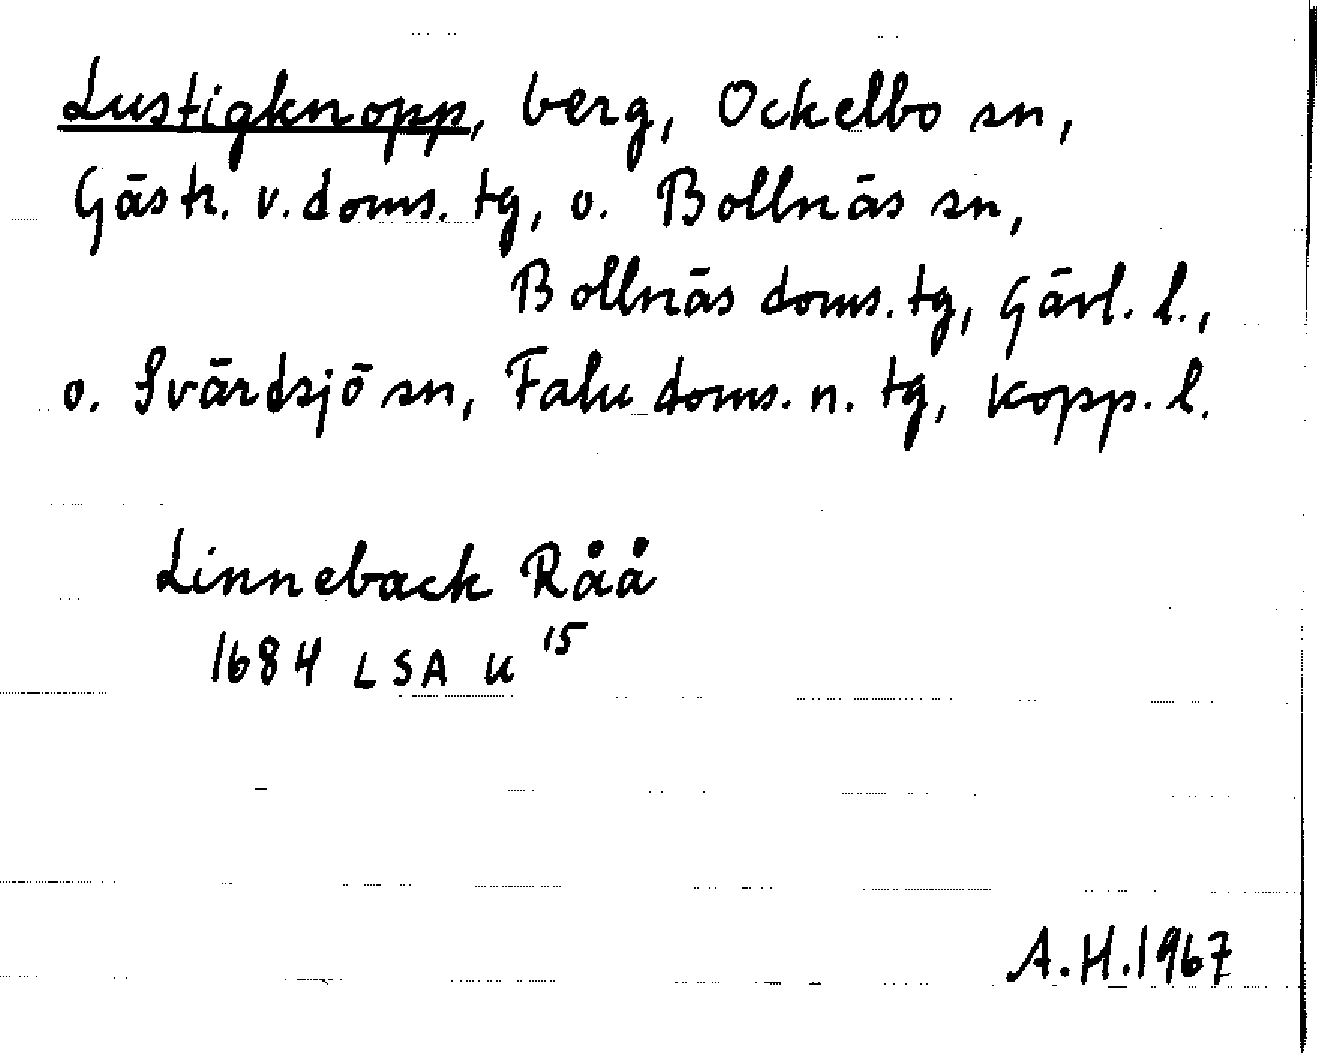 Lustigknopp, berg, Ockelbo sn,
Gästr. v. doms. tg, o. Bollnäs sn,
Bollnäs doms. tg, Gävl. l.,
o. Svärdsjö sn, Falu doms. n. tg, Kopp. l.
Linneback Råå
1684 LSA U 15
A.H. 1967